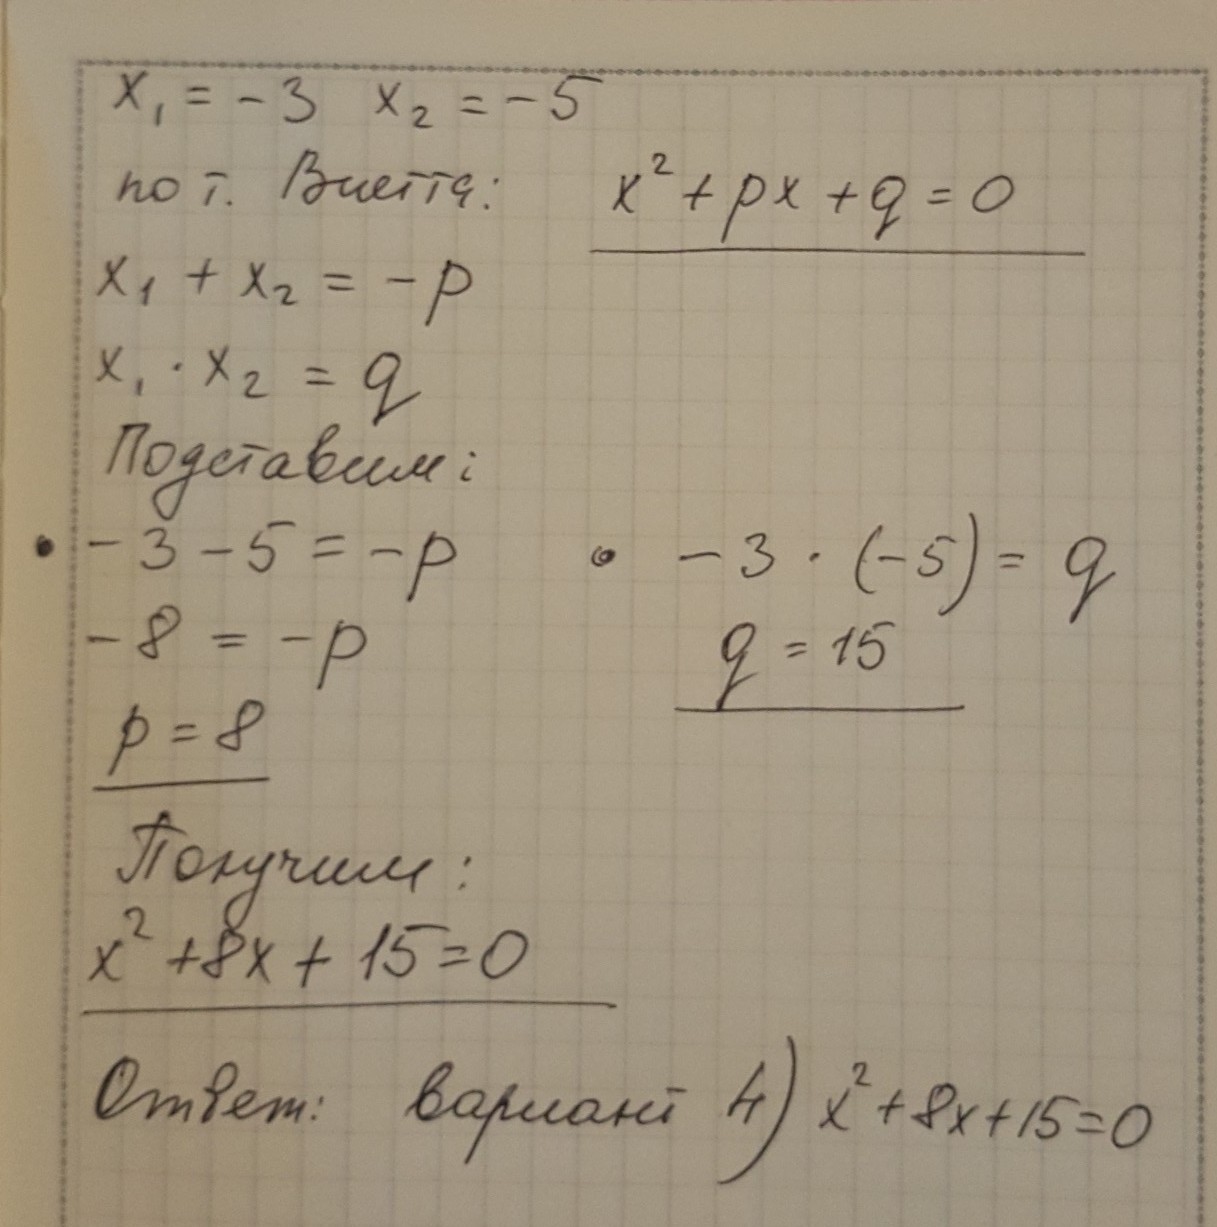 x₁ = -3 x₂ = -5
по т. Виетта: x² + px + q = 0
x₁ + x₂ = -p
x₁ · x₂ = q
Подставим:
• -3 - 5 = -p • -3 · (-5) = q
-8 = -p q = 15
p = 8
Получим:
x² + 8x + 15 = 0
Ответ: вариант 4) x² + 8x + 15 = 0